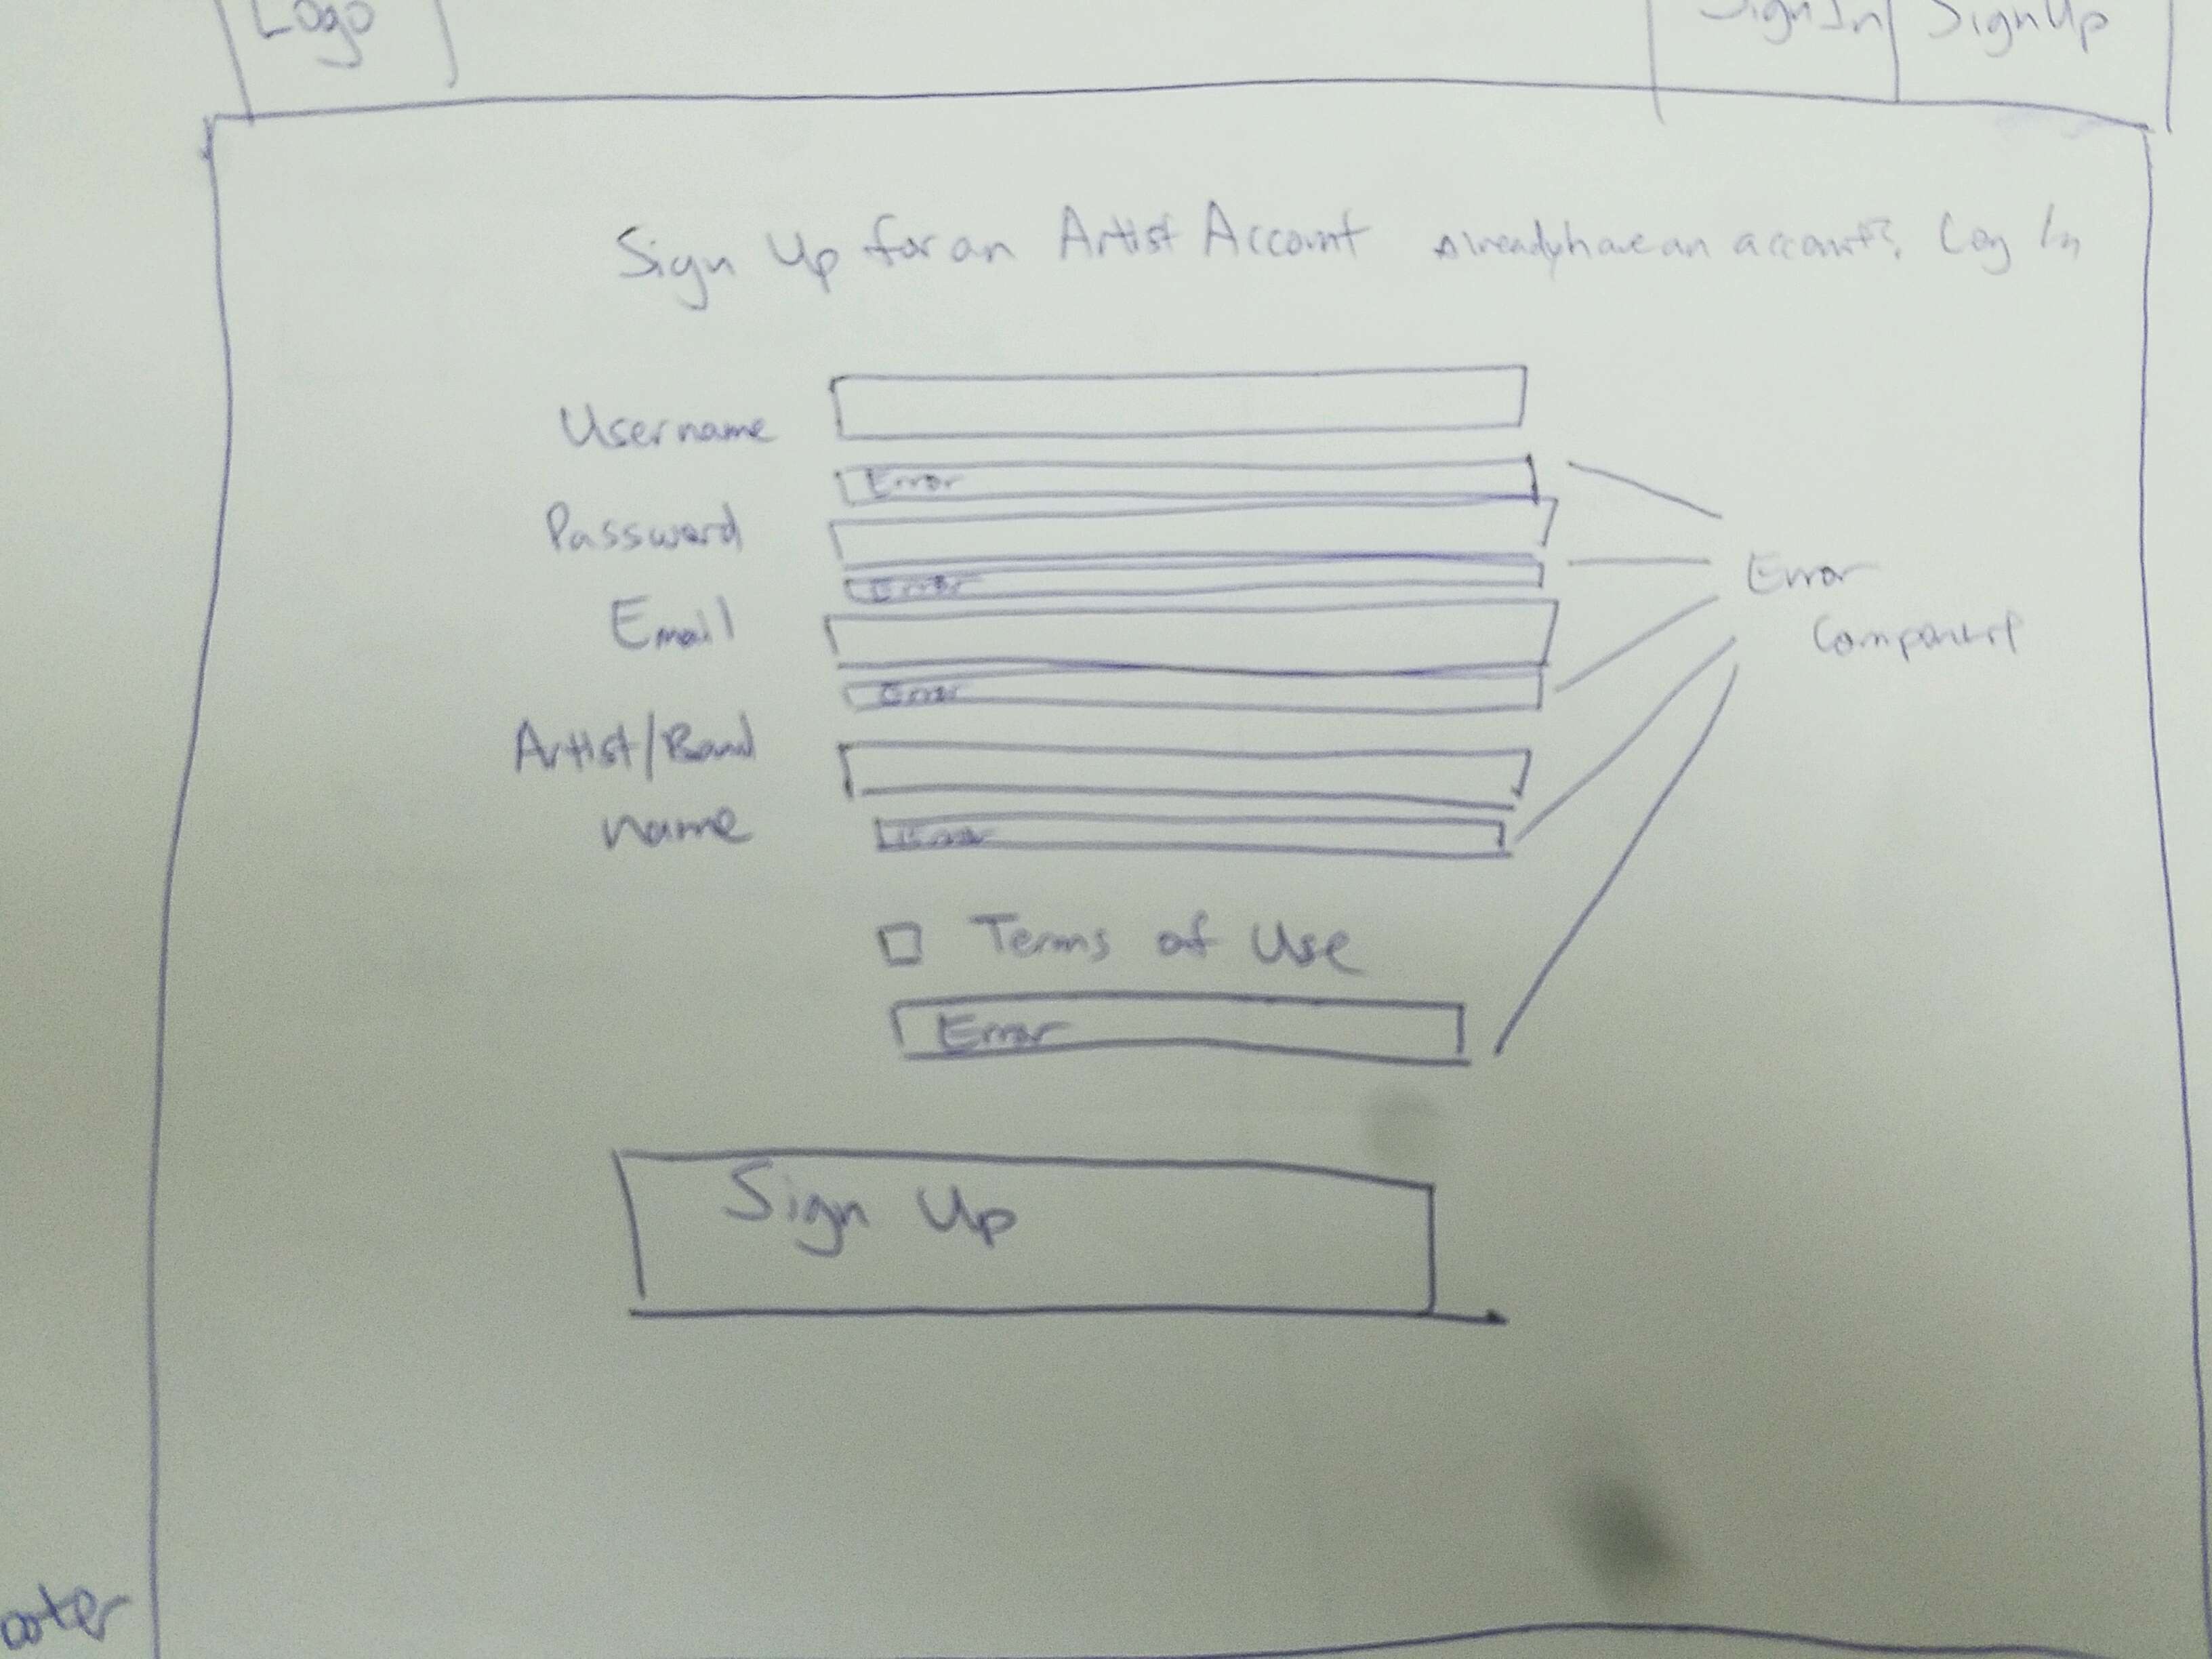 Logo
Sign In Sign Up
Sign Up for an Artist Account Already have an account? Log In
Username
Error
Password
Error
Email
Error
Artist/Band
name
Error
Error
Component
Terms of Use
Error
Sign Up
ooter